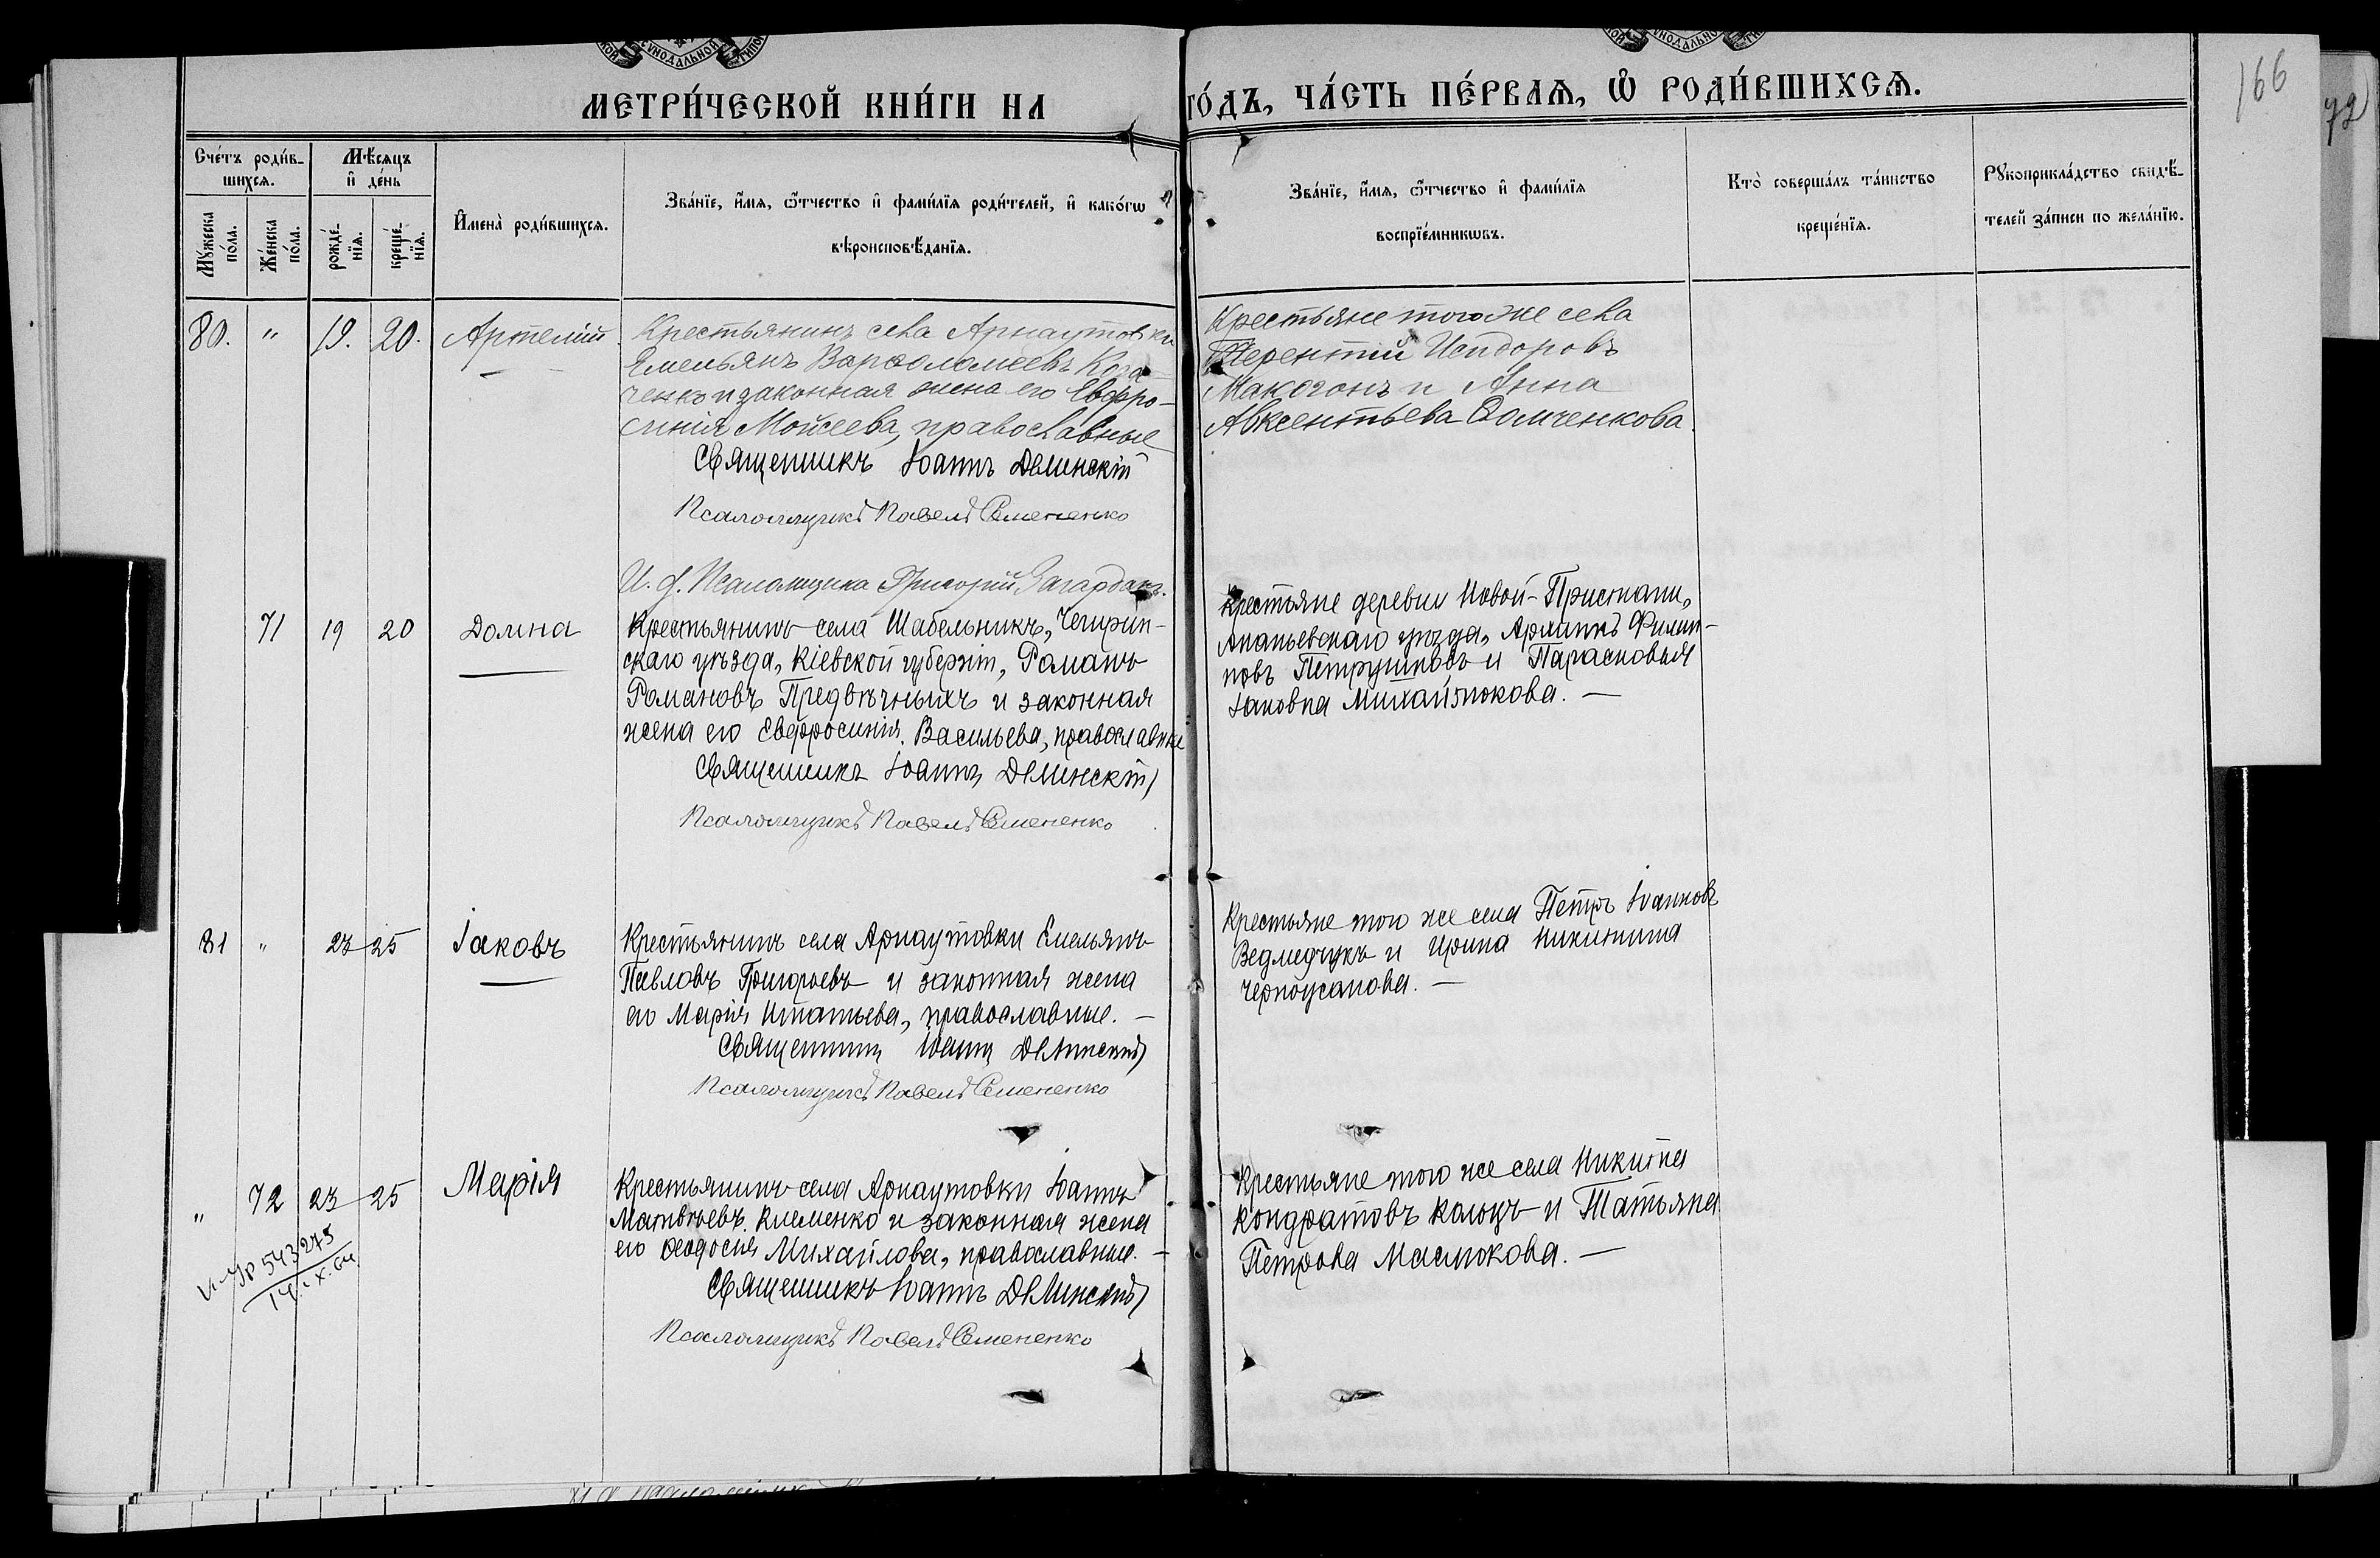 МЕТРИ́ЧЕСКОЙ КНИ́ГИ НА ГО́ДЪ, ЧА́СТЬ ПЕ́РВАѦ, Ѿ РОДИ́ВШИХСѦ.
166
72
Сче́тъ роди́в-
шихсѧ.
Мѣ́сяцъ
и҆ де́нь
Мꙋ́жеска
по́ла.
Же́нска
по́ла.
рожде́-
нїѧ.
креще́-
нїѧ.
И҆мена̀ роди́вшихсѧ.
Зва́нїе, и҆́мѧ, ѻ҆́тчество и҆ фами́лїѧ роди́телей, и҆ како́гѡ
вѣроисповѣ́данїѧ.
Зва́нїе, и҆́мѧ, ѻ҆́тчество и҆ фами́лїѧ
воспрїе́мникѡвъ.
Кто̀ соверша́лъ та́инство
креще́нїѧ.
Рꙋкоприкла́дство свидѣ́-
телей за́писи по жела́нїю.
80. " 19. 20. Артемій
Крестьянинъ села Арнаутовки
Емельянъ Варфоломеевъ Коза-
ченко и законная жена его Евфро-
синія Мойсеева, православные
Священникъ Іоаннъ Длинскій
Псаломщикъ Павелъ Семененко
И. д. Псаломщика Григорій Загародскъ.
Крестьяне того же села
Терентій Исидоровъ
Макогонъ и Анна
Авксентьева Фомченкова.
71 19 20 Домна
Крестьянинъ села Шабельникъ, Чигирин-
скаго уѣзда, Кіевской губерніи, Романъ
Романовъ Предвѣчныхъ и законная
жена его Евфросинія Васильева, православные
Священникъ Іоаннъ Длинскій
Псаломщикъ Павелъ Семененко
Крестьяне деревни Новой-Пристани,
Ананьевскаго уѣзда, Архипъ Филип-
повъ Петрушковъ и Парасковья
Іаковва Михайлюкова. —
81 " 23 25 Іаковъ
Крестьянинъ села Арнаутовки Емельянъ
Павловъ Григорьевъ и законная жена
его Марія Игнатьева, православные. —
Священникъ Іоаннъ Длинскій
Псаломщикъ Павелъ Семененко
Крестьяне того же села Петръ Іоанновъ
Ведмедчукъ и Ирина Никитина
Черноусанова. —
" 72 23 25 Марія
Крестьянинъ села Арнаутовки Іоаннъ
Матвѣевъ Клеменко и законная жена
его Ѳеодосія Михайлова, православные. —
Священникъ Іоаннъ Длинскій
Псаломщикъ Павелъ Семененко
Крестьяне того же села Никита
Кондратовъ Кольцъ и Татьяна
Петрова Маслюкова. —
543275